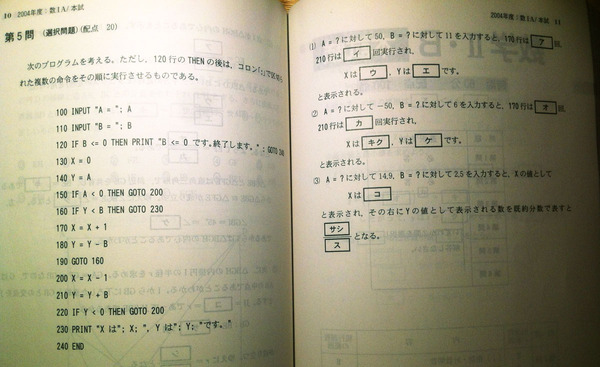 10 2004年度:数IA/本試
第5問 (選択問題)(配点 20)
次のプログラムを考える。ただし、120行のTHENの後は、コロン「:」で
れた複数の命令をその順に実行させるものである。
100 INPUT "A = "; A
110 INPUT "B = "; B
120 IF B <= 0 THEN PRINT "B <= 0 です。終了します。" : GOTO 240
130 X = 0
140 Y = A
150 IF A < 0 THEN GOTO 200
160 IF Y < B THEN GOTO 230
170 X = X + 1
180 Y = Y - B
190 GOTO 160
200 X = X - 1
210 Y = Y + B
220 IF Y < 0 THEN GOTO 200
230 PRINT "X は"; X; ", Y は"; Y; "です。"
240 END
2004年度:数IA/本試 11
(1) A = ? に対して50, B = ? に対して11を入力すると、170行は ア 回,
210行は イ 回実行され、
Xは ウ , Yは エ です。
と表示される。
(2) A = ? に対して -50, B = ? に対して6を入力すると、170行は オ 回,
210行は カ 回実行され、
Xは キク , Yは ケ です。
と表示される。
(3) A = ? に対して14.9, B = ? に対して2.5を入力すると、Xの値として
Xは コ
と表示され、その右にYの値として表示される数を既約分数で表すと
サシ
ス
となる。